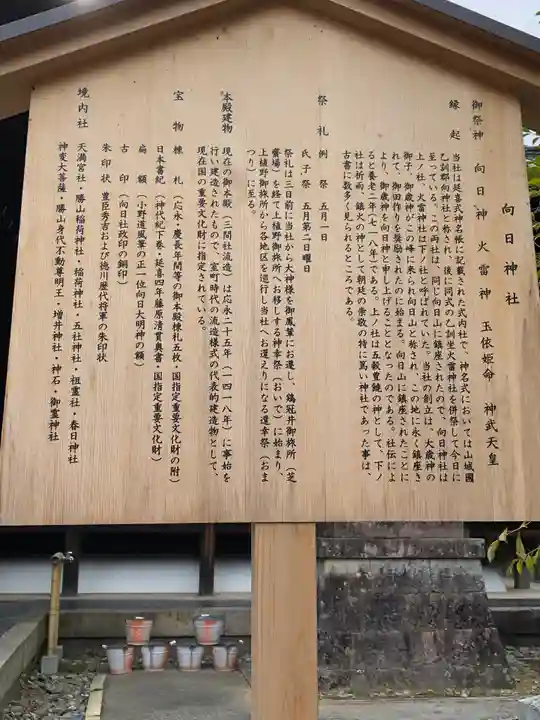 向日神社
御祭神　向日神　火雷神　玉依姫命　神武天皇
縁起　当社は延喜式神名帳に記載された式内社で、神名式においては山城國
乙訓郡向神社と称され、後に同式の乙訓坐火雷神社を併祭して今日に
至っている。この両社は、同じ向日山に鎮座されたので、向日神社は
上ノ社、火雷神社は下ノ社と呼ばれていた。当社の創立は、大歳神の
御子、御歳神がこの峰に来られ向日山と称され、この地に永く鎮座さ
れて、御田作りを奨励されたのに始まる。向日山に鎮座されたことに
より、御歳神を向日神と申し上げることとなったのである。社伝によ
ると養老二年（七一八年）である。上ノ社は五穀豊饒の神として、下ノ
社は祈雨、鎮火の神として朝廷の崇敬の特に篤い神社であった事は、
古書に数多く見られるところである。
祭礼　例祭　五月一日
氏子祭　五月第二日曜日
祭礼は三日前に当社から大神様を御鳳輦にお遷し、鶏冠井御旅所（芝
斎場）を経て上植野御旅所へお移しする神幸祭（おいで）に始まり、
上植野御旅所から各地区を巡行し当社へお還えりになる還幸祭（おま
つり）に至る。
本殿建物　現在の御本殿（三間社流造）は応永二十五年（一四一八年）に事始を
行い建造されたもので、室町時代の流造様式の代表的建造物として、
現在国の重要文化財に指定されている。
宝物　棟札（応永・慶長年間等の御本殿棟札五枚・国指定重要文化財の附）
日本書紀（神代紀下巻・延喜四年藤原清貫奥書・国指定重要文化財）
扁額（小野道風筆の正一位向日大明神の額）
古印（向日社政印の銅印）
朱印状　豊臣秀吉および徳川歴代将軍の朱印状
境内社　天満宮社・勝山稲荷神社・稲荷神社・五社神社・祖霊社・春日神社
神変大菩薩・勝山身代不動尊明王・増井神社・神石・御霊神社